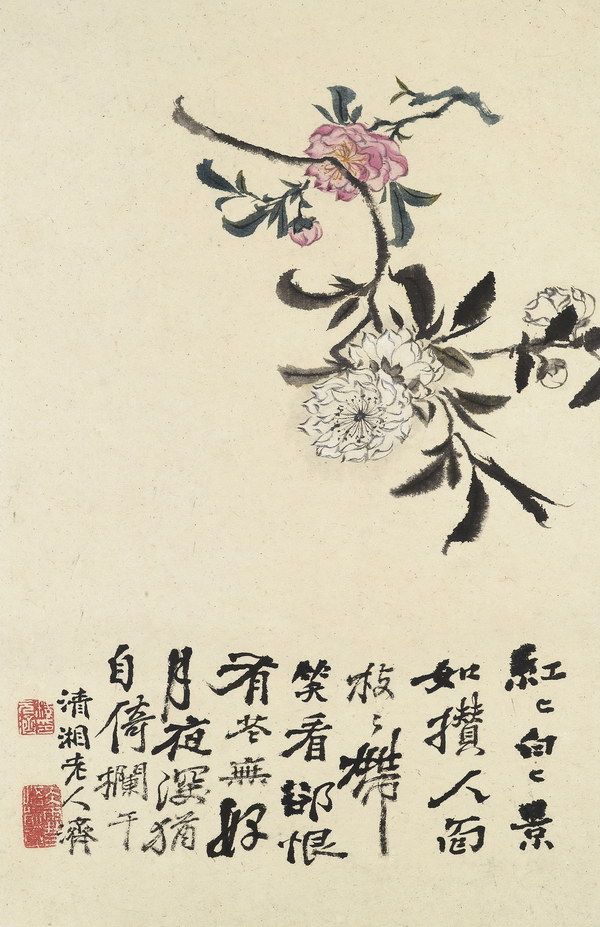 紅〻白〻景
如攢人面
枝〻帶
笑看卻恨
有花無好
月夜深猶
自倚攔干
清湘老人濟